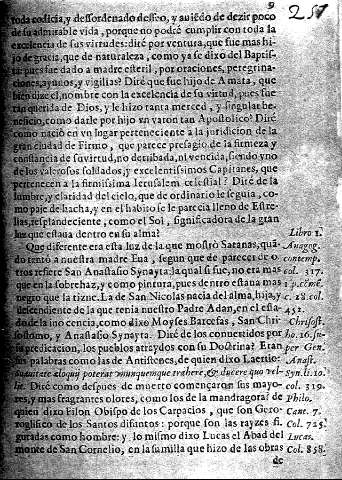 9
257
toda codicia, y desordenado desseo, y auiẽdo de dezir poco
de su admirable vida, porque no podrè cumplir con toda la
excelencia de sus virtudes: dirè por ventura, que fue mas hi-
jo de gracia, que de naturaleza, como ya se dixo del Baptis-
ta: pues fue dado a madre esteril, por oraciones, peregrina-
ciones, ayunos, y vigilias? Dirè que fue hijo de Amata, que
bien dize el nombre con la excelencia de su virtud, pues fue
tan querida de Dios, y le hizo tanta merced, y singular be-
neficio, como darle por hijo vn varon tan Apostolico? Dirè
como naciò en vn lugar perteneciente a la juridicion de la
gran ciudad de Firmo, que parece presagio de la firmeza y
constancia de su virtud, no derribada, ni vencida, siendo vno
de los valerosos soldados, y excelentissimos Capitanes, que
pertenecen a la firmissima Ierusalem celestial? Dirè de la
lumbre, y claridad del cielo, que de ordinario le seguia, co-
mo paje de hacha, y en el habito se le parecia lleno de Estre-
llas, resplandeciente, como el Sol, significadora de la gran
luz que estaua dentro en su alma?
Que diferente era esta luz de la que mostrò Satanas, quã-
do tentò a nuestra madre Eua, segun que de parecer de o
tros refiere San Anastasio Synayta: la qual si fue, no era mas
que en la sobrehaz, y como pintura, pues dentro estaua mas
negro que la tizne. La de San Nicolas nacia del alma, hija, y
descendiente de la que tenia nuestro Padre Adan, en el esta-
do de la inocencia, como dixo Moyses Barcefas, San Chri
sostomo, y Anastasio Synayta. Dirè de los conuertidos por
su predicacion, los pueblos atreydos con su Doctrina? Eran
sus palabras como las de Antistenes, de quien dixo Laertio:
Suauitate eloquij poterat nunquemque trahere, & ducere quo vel-
let. Dirè como despues de muerto començaron sus mayo-
res, y mas fragrantes olores, como los de la mandragora? de
quien dixo Filon Obispo de los Carpacios, que son Gero-
roglifico de los Santos difuntos: porque son las rayzes fi-
guradas como hombre: y lo mismo dixo Lucas el Abad del
monte de San Cornelio, en la familla que hizo de las obras
de
Libro 1.
Anagog.
contemp.
col. 317.
c. 28. col
452.
Chrisost.
ho. 16. su-
per Gen.
Anast.
Syn. li. 10.
col. 319.
Philo.
Cant. 7.
Col. 725.
Lucas.
Col. 858.